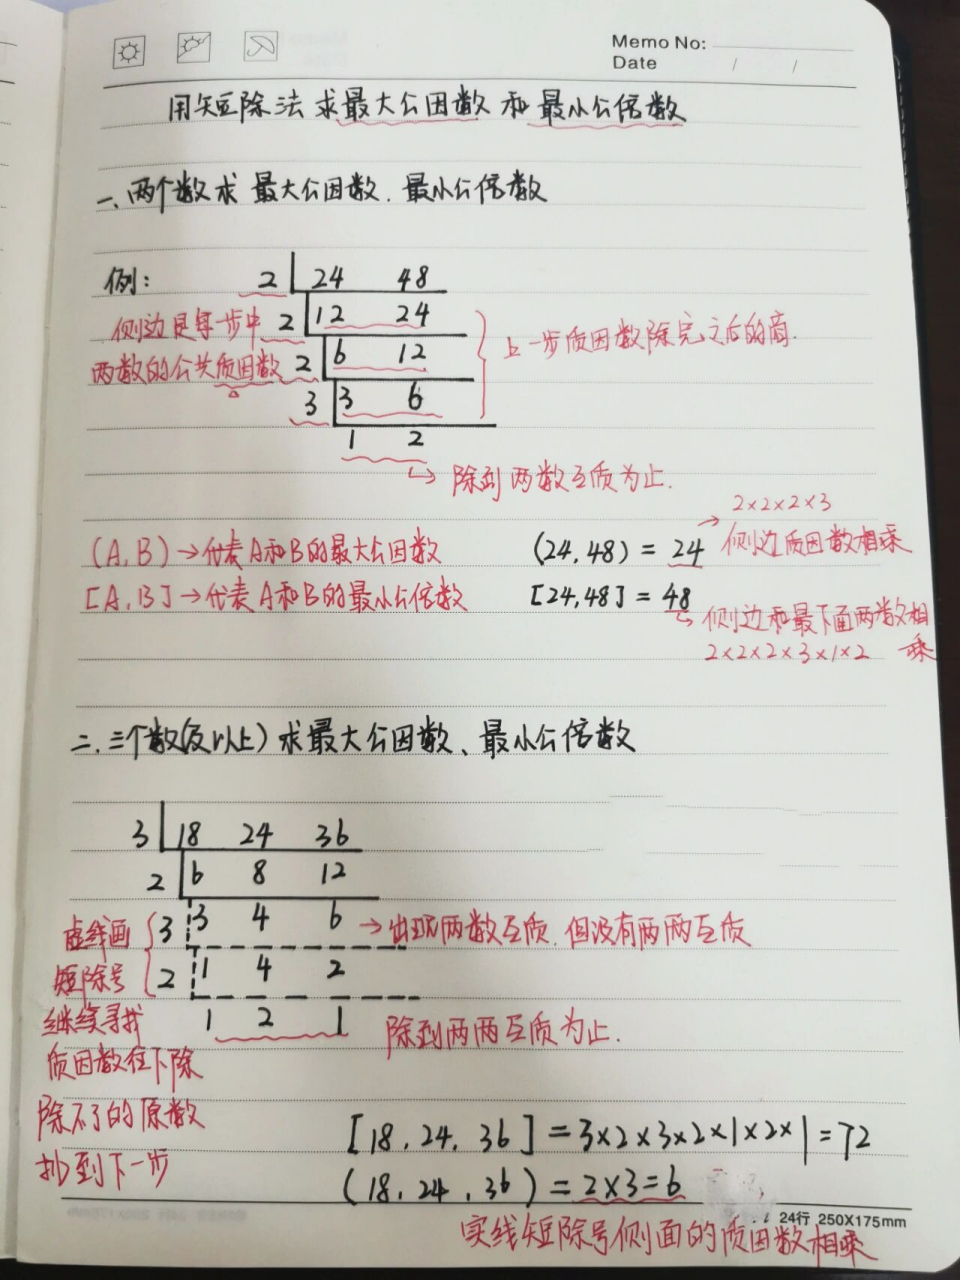 Memo No:
Date / /
用短除法求最大公因数和最小公倍数
一、两个数求最大公因数、最小公倍数
例: 2 24 48
侧边是每一步中 2 12 24
两数的公共质因数 2 6 12 上一步质因数除完之后的商.
3 3 6
1 2
→ 除到两数互质为止.
2×2×2×3
(A,B)→代表A和B的最大公因数 (24,48) = 24 → 侧边质因数相乘
[A,B]→代表A和B的最小公倍数 [24,48] = 48
→ 侧边和最下面两数相乘
2×2×2×3×1×2
二、三个数(及以上)求最大公因数、最小公倍数
3 18 24 36
2 6 8 12
虚线画 3 3 4 6 → 出现两数互质,但没有两两互质
短除号 2 1 4 2
继续寻找 1 2 1 除到两两互质为止.
质因数往下除
除不了的原数
抄到下一步
[18,24,36] = 3×2×3×2×1×2×1=72
(18,24,36) = 2×3=6
24行 250X175mm
实线短除号侧面的质因数相乘